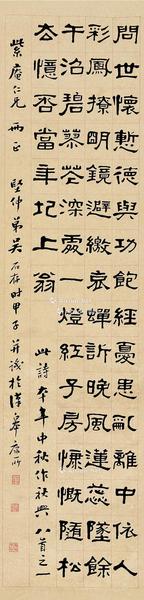 問世懷慙德與功飽經憂患亂離中依人
彩鳳撩明鏡避繳哀蟬訴晚風蓮蕊墜餘
半沼碧蓼花深處一燈紅子房慷慨隨松
去憶否當年圯上翁 此詩本年中秋作秋興八首之一
紫庵仁兄 兩正 堅仲弟吳石存時甲子 并識於漢皋